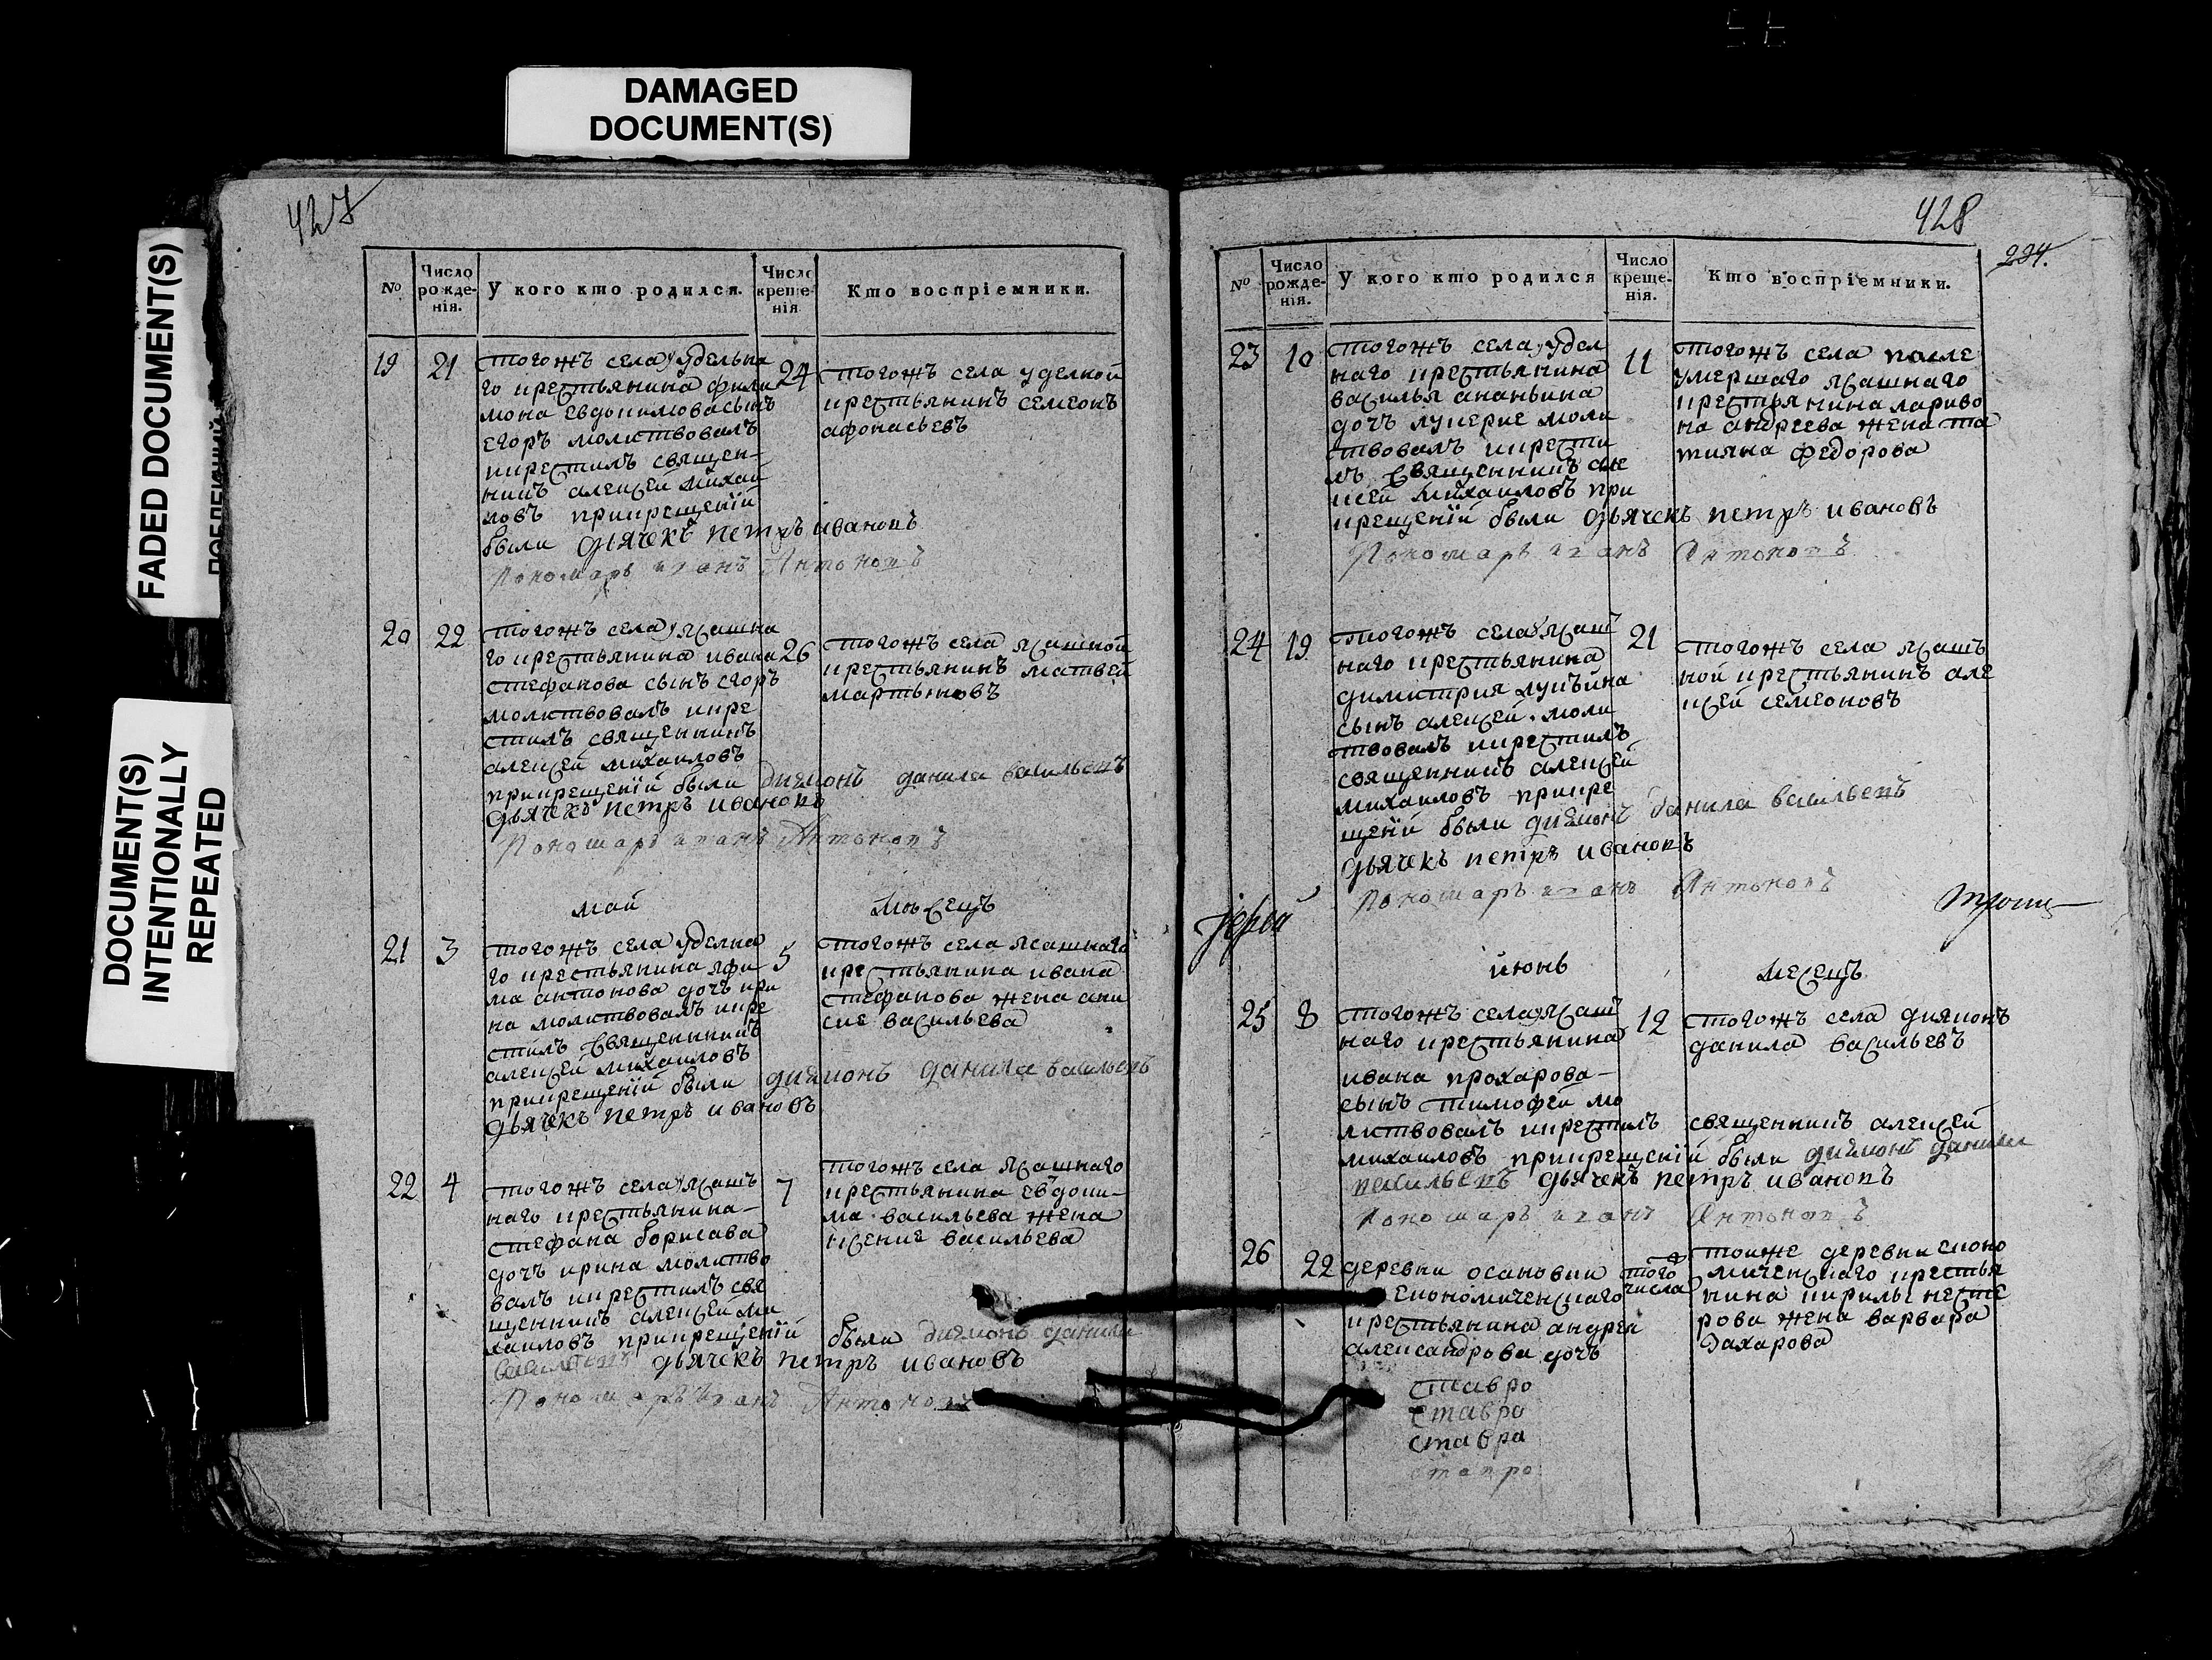 DAMAGED
DOCUMENT(S)
FADED DOCUMENT(S)
DOCUMENT(S)
INTENTIONALLY
REPEATED
427
№
Число рожде-нія.
У кого кто родился.
Число креще-нія
Кто воспріемники.
19
21
тогожъ села уудельна
го крестьянина фили
мона евдокимова сынъ
егоръ молитвовалъ
икрестилъ священ-
никъ алексей михаи
ловъ прикрещенїи
были дьячекъ петръ ивановъ
Пономарь иванъ Антоновъ
24
тогожъ села уделной
крестьянинъ семеонъ
афонасьевъ
20
22
тогожъ села уясашна
го крестьянина ивана
стефанова сынъ егоръ
молитвовалъ икре
стилъ священникъ
алексей михаиловъ
прикрещенїи были дияконъ данила васильевъ
дьячекъ петръ ивановъ
Пономарь иванъ Антоновъ
26
тогожъ села ясашной
крестьянинъ матвей
мартыновъ
май
месецъ
21
3
тогожъ села уделна
го крестьянина яфи
ма антонова дочь ири
на молитвовалъ икре
стилъ священникъ
алексей михаиловъ
прикрещенїи были дияконъ данила васильевъ
дьячекъ петръ ивановъ
5
тогожъ села ясашнаго
крестьянина ивана
стефанова жена ани
сие васильева
22
4
тогожъ села уясашъ
наго крестьянина
стефана борисава
дочъ ирина молитво
валъ икрестилъ свя
щенникъ алексей ми
хаиловъ прикрещенїи были дияконъ данила
васильевъ дьячекъ петръ ивановъ
Пономарь иванъ Антоновъ
7
тогожъ села ясашнаго
крестьянина евдоки-
ма васильева жена
ксение васильева
428
234.
№
Число рожде-нія.
У кого кто родился
Число креще-нія.
Кто воспріемники.
23
10
тогожъ села уудел
наго крестьянина
василья ананьина
дочъ лукерие моли
твовалъ икрести
лъ священникъ але
ксей михаиловъ при
крещенїи были дьячекъ петръ ивановъ
Пономарь иванъ Антоновъ
11
тогожъ села после
умершаго ясашнаго
крестьянина лариво
на андреева жена та
тияна федорова
24
19
тогожъ села уясаш
наго крестьянина
димитрия лукъина
сынъ алексей моли
твовалъ икрестилъ
священникъ алексей
михаиловъ прикре
щенїи были дияконъ данила васильевъ
дьячекъ петръ ивановъ
Пономаръ иванъ Антоновъ
21
тогожъ села ясашъ
ной крестьянинъ але
ксей семеоновъ
іерей
июнь
месецъ
25
8
тогожъ села уясаш
наго крестьянина
ивана прохарова
сынъ тимофей мо
литвовалъ икрестилъ священникъ алексей
михаиловъ прикрещенїи были дияконъ данила
васильевъ дьячекъ петръ ивановъ
Пономаръ иванъ Антоновъ
12
тогожъ села дияконъ
данила васильевъ
26
22
деревни осановки
економическаго
крестьянина андрея
александрова дочь
ставро
ставро
ставра
ставро
того
числа
тоиже деревни еконо
мическаго крестья
нина кирилы несте
рова жена варвара
захарова